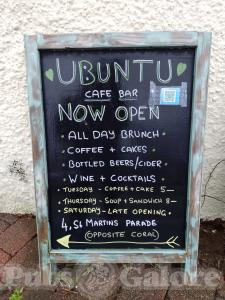 UBUNTU
CAFE BAR
NOW OPEN
• ALL DAY BRUNCH
• COFFEE + CAKES
• BOTTLED BEERS/CIDER
• WINE + COCKTAILS
• TUESDAY - COFFEE + CAKE 5—
• THURSDAY - SOUP + SANDWICH 8—
• SATURDAY - LATE OPENING •
4, St MARTINS PARADE
(OPPOSITE CORAL)